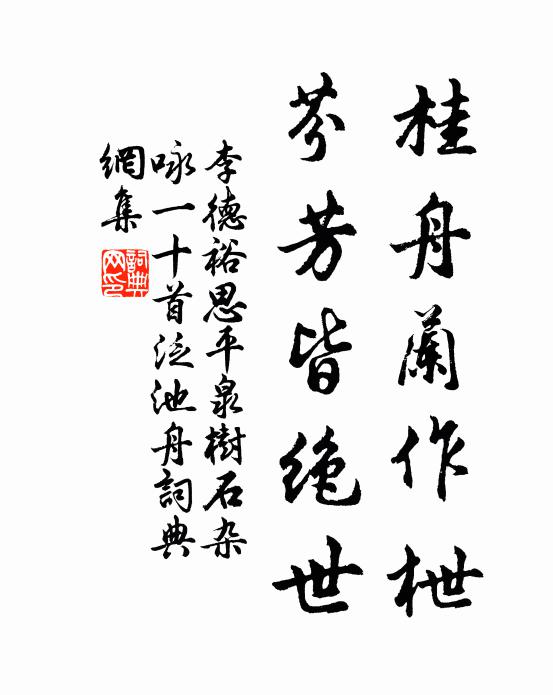 桂舟蘭作枻
芬芳皆絶世
李德裕思平泉樹石杂
咏一十首泛池舟詞典
網集
詞典
网印